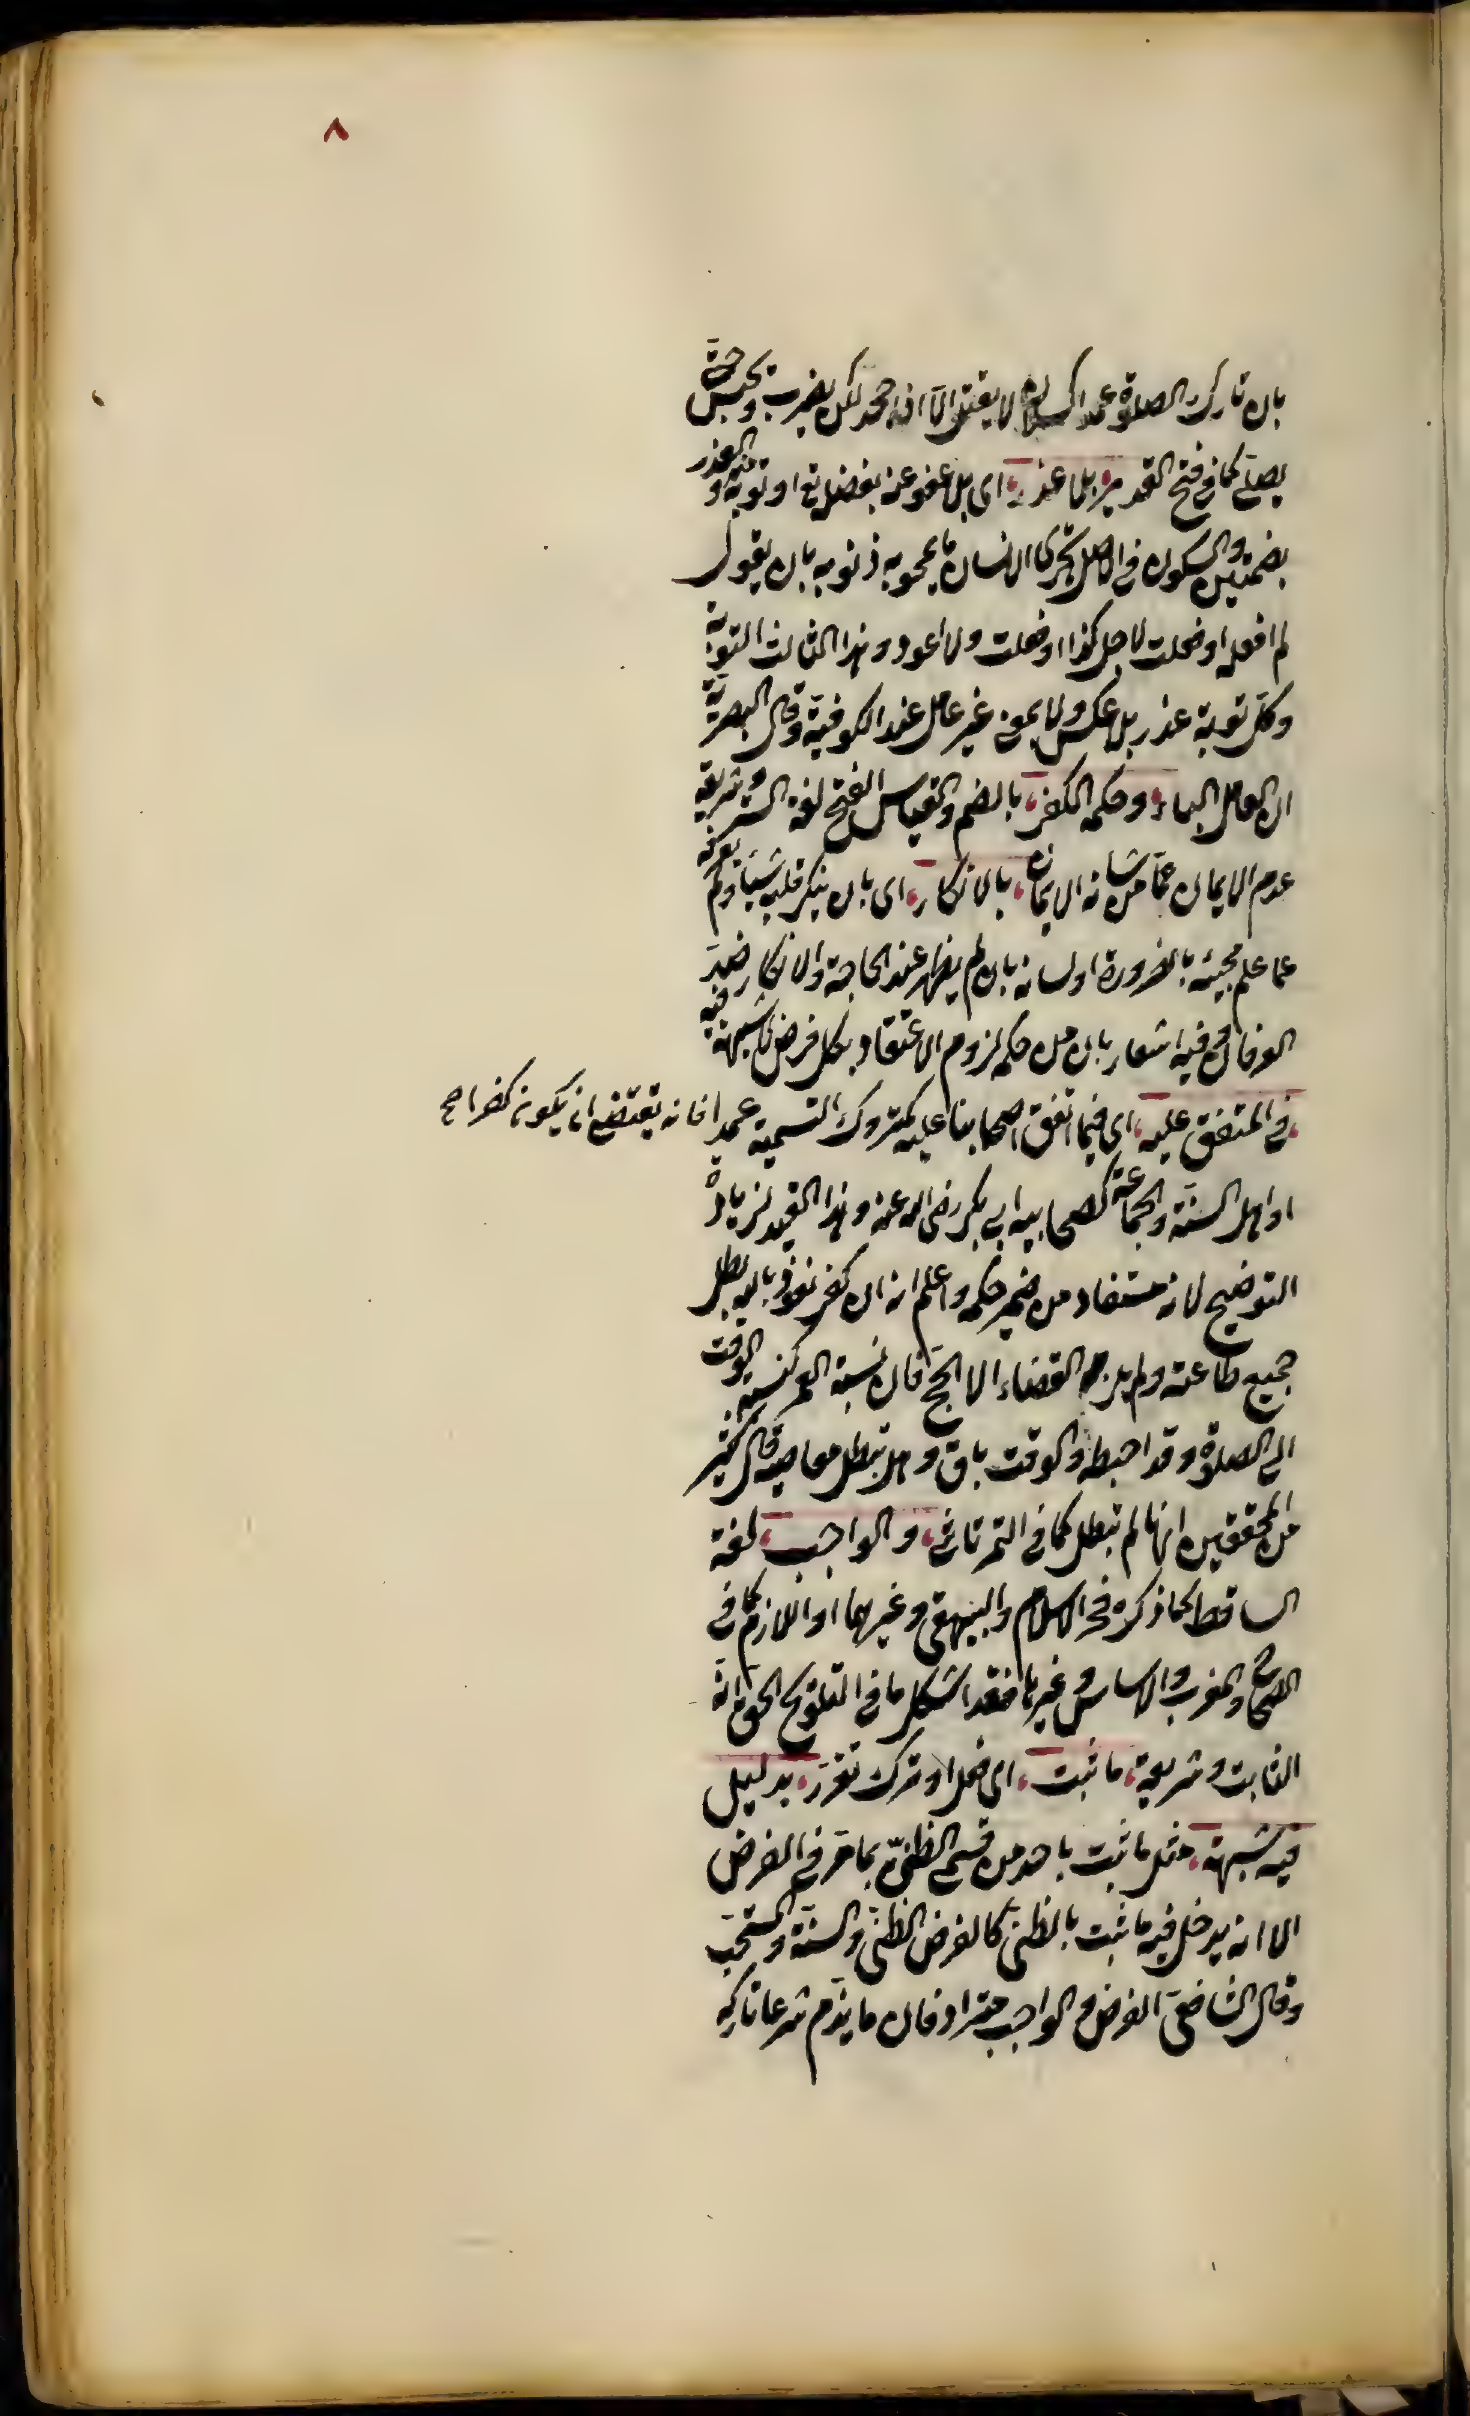 ٨
بان تارك الصلوة عمدا كسلا لا يقتل الا اذا جحد لكن يضرب ويحبس حتى
يصلى كما في فتح القدير بلا عذر اى بل عفو عنه بفضله تعالى او توبة منه والعذر
بضمتين والسكون في الاصل تحرى الانسان ما يمحو به ذنوبه بان يقول
لم افعله او فعلت لاجل كذا او فعلت ولا اعود وهذا الثالث التوبة
وكل توبة عذر بلا عكس ولا بمعنى غير عامل عند الكوفية وقال البصرية
ان العامل الباء وحكمه الكفر بالضم والقياس الفتح لغة الستر وشريعة
عدم الايمان عما من شانه الايمان بالانكار اى بان ينكر قلبه شيئا ولم يعرفه
مما علم مجيئه بالضرورة او لسانه بان لم يظهر عند الحاجة والانكار ضد
العرفان وفيه اشعار بان من حكمه لزوم الاعتقاد بكل فرض لا شبهة فيه
في المتفق عليه اى فيما اتفق اصحابنا عليه كمتروك التسمية عمدا فانه يقتضى ان يكون كفرا صح
او اهل السنة والجماعة كصحابية ابى بكر رضى الله عنه وهذا القيد لزيادة
التوضيح لانه مستفاد من ضمير حكمه واعلم انه ان كفر نعوذ بالله بطل
جميع طاعته ولم يلزم القضاء الا الحج فان نسبة العمر كنسبة الوقت
الى الصلوة وقد احبطه والوقت باق وهل تبطل معاصيه قال كثير
من المحققين انها لم تبطل كما في التمرتاشى والواجب لغة
الساقط كما ذكره فخر الاسلام والبيهقى وغيرهما او اللازم كما في
الصحاح والمغرب والاساس وغيرها فقد اشكل ما في التلويح الحق انه
الثابت وشريعة ما ثبت اى فعل او ترك تقرر بدليل
فيه شبهة مثل ما ثبت باحد من قسمى الظنى بما مر في الفرض
الا انه يدخل فيه ما ثبت بالظنى كالفرض الظنى والسنة والمستحب
وقال الشافعى الفرض والواجب مترادفان ما يذم شرعا تاركه